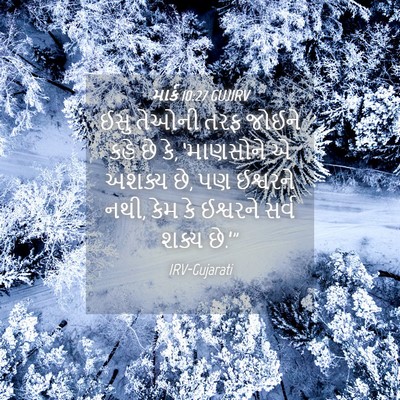 માર્ક 10:27 GUJIRV
ઈસુ તેઓની તરફ જોઈને
કહે છે કે, 'માણસોને એ
અશક્ય છે, પણ ઈશ્વરને
નથી, કેમ કે ઈશ્વરને સર્વ
શક્ય છે.'”
IRV-Gujarati